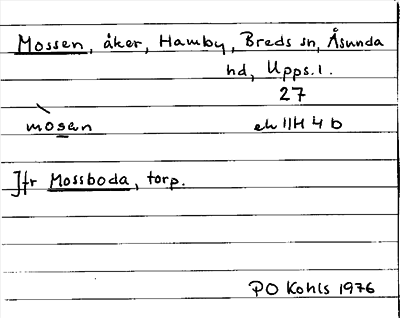 Mossen, åker, Hamby, Breds sn, Åsunda
hd, Upps. l.
27
mòsen ek 11H 4 b
Jfr Mossboda, torp.
PO Kohls 1976